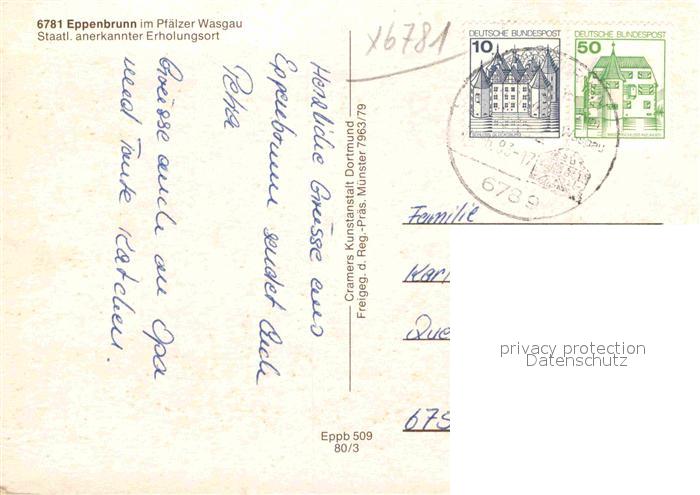 6781 Eppenbrunn im Pfälzer Wasgau
Staatl. anerkannter Erholungsort
X6781
DEUTSCHE BUNDESPOST
10
SCHLOSS GLÜCKSBURG
DEUTSCHE BUNDESPOST
50
Herzliche Grüsse aus
Eppenbrunn sendet Euch
Petra
Grüsse auch an Opa
und Tante Kätchen.
Cramers Kunstanstalt Dortmund
Freigeg. d. Reg.-Präs. Münster 7963/79
Eppb 509
80/3
6789
Familie
Karl
Que
675
privacy protection
Datenschutz